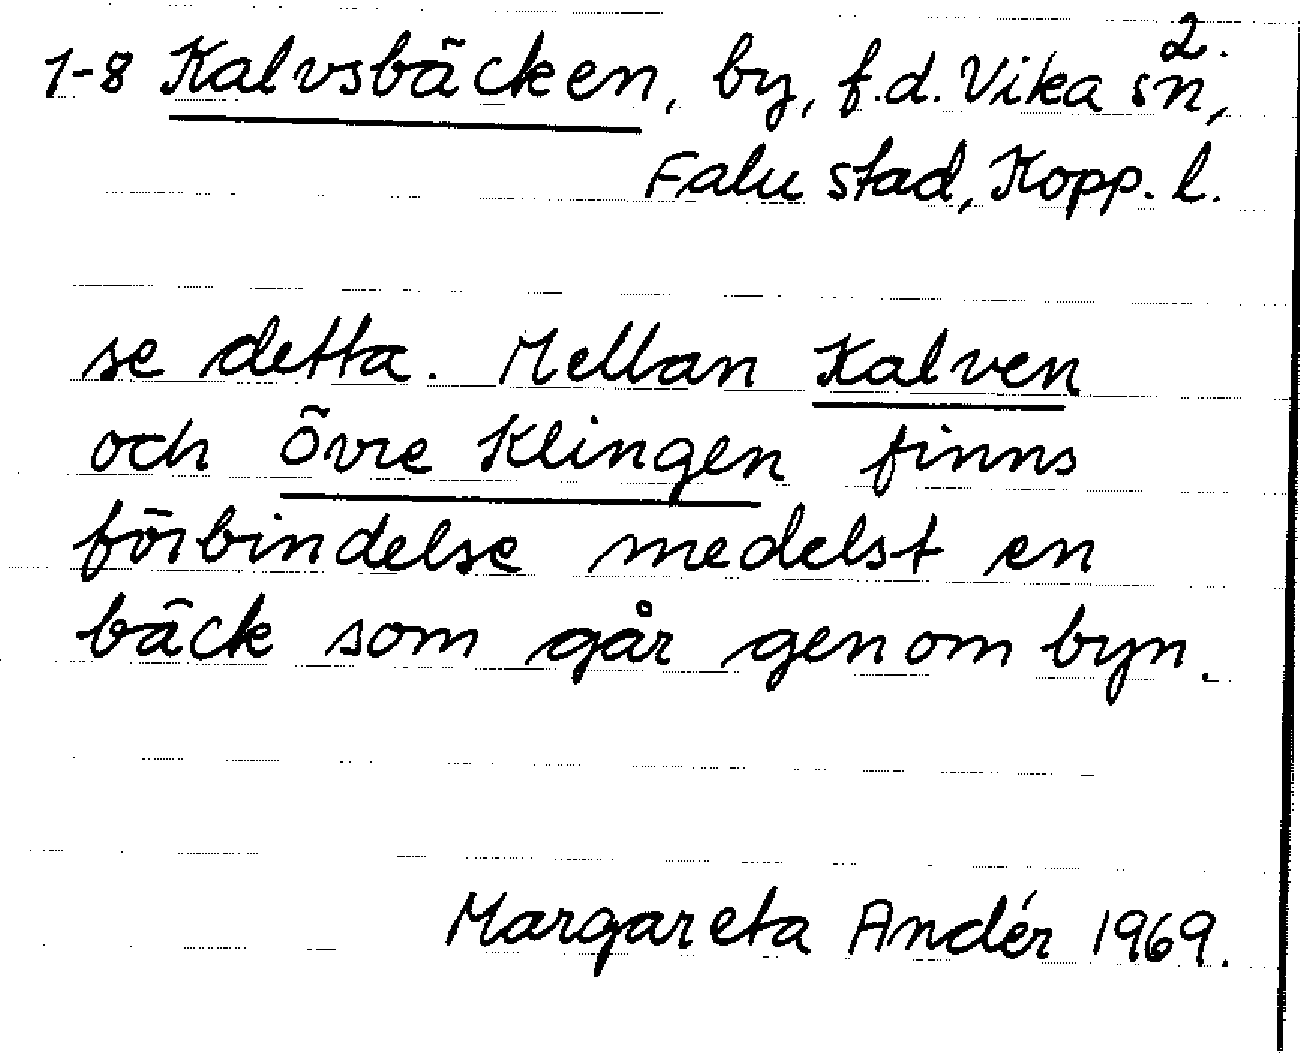 2.
1-8 Kalvsbäcken, by, f.d. Vika sn,
Falu stad, Kopp. l.
se detta. Mellan Kalven
och Övre Klingen finns
förbindelse medelst en
bäck som går genom byn.
Margareta Andér 1969.